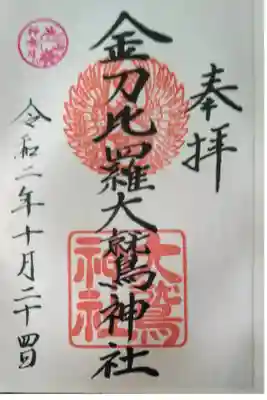 奉拝
金刀比羅大鷲神社
大鷲神社
令和二年十月二十四日